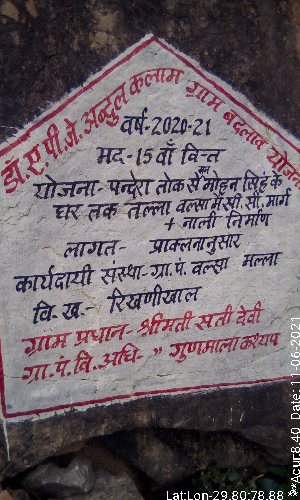 डॉ. ए. पी. जे. अब्दुल कलाम ग्राम बदलाव योजना
वर्ष-2020-21
मद-15वाँ वित्त
योजना- पन्देरा तोक से मोहन सिंह के
घर तक तल्ला वल्सा में सी. सी. मार्ग
+ नाली निर्माण
लागत- प्राक्लनानुसार
कार्यदायी संस्था-ग्रा.पं. वल्सा मल्ला
वि.ख.- रिखणीखाल
ग्राम प्रधान- श्रीमती सती देवी
ग्रा.पं.वि.अधि- " गुणमाला कश्यप
LatLon-29.80:78.88
**Acur:8.40 Date:11-06-2021